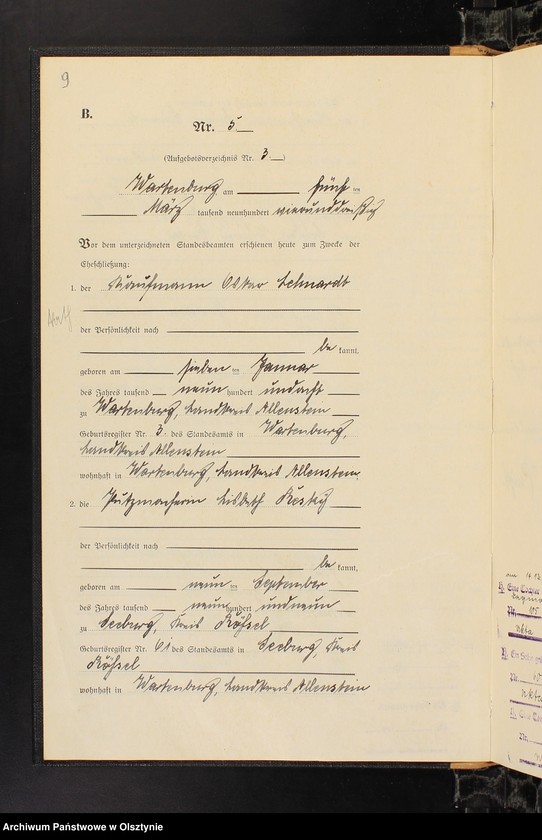 9
B.
Nr. 5
(Aufgebotsverzeichnis Nr. 3)
Wartenburg am fünf ten
März tausend neunhundert vierunddreißig
Vor dem unterzeichneten Standesbeamten erschienen heute zum Zwecke der
Eheschließung:
1. der Kaufmann Oskar Lehnardt
der Persönlichkeit nach
be kannt,
geboren am sieben ten Januar
des Jahres tausend neun hundert undacht
zu Wartenburg, Landkreis Allenstein
Geburtsregister Nr. 3 des Standesamts in Wartenburg,
Landkreis Allenstein
wohnhaft in Wartenburg, Landkreis Allenstein,
2. die Putzmacherin Lisbeth
der Persönlichkeit nach
be kannt,
geboren am neun ten September
des Jahres tausend neun hundert undneun
zu Seeburg, Kreis Rößel
Geburtsregister Nr. 61 des Standesamts in Seeburg, Kreis
Rößel
wohnhaft in Wartenburg, Landkreis Allenstein
Archiwum Państwowe w Olsztynie